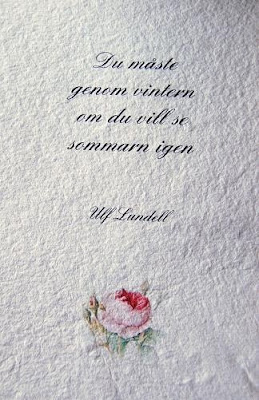 Du måste
genom vintern
om du vill se
sommarn igen
Ulf Lundell